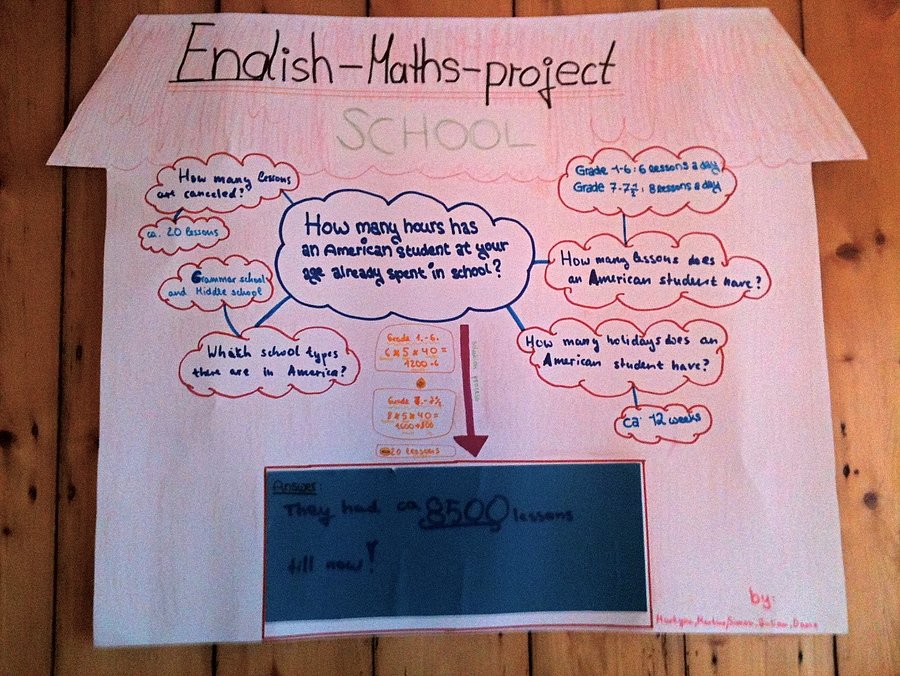 English-Maths-project
SCHOOL
How many lessons
are canceled?
ca. 20 lessons
Grammar school
and Middle school
Which school types
there are in America?
How many hours has
an American student at your
age already spent in school?
Grade 1-6: 6 lessons a day
Grade 7-7½: 8 lessons a day
How many lessons does
an American student have?
How many holidays does an
American student have?
ca. 12 weeks
Grade 1.-6.
6*5*40=
1200*6
Grade 7.-7½
8*5*40=
1600+800
20 lessons
Answer:
They had ca 8500 lessons
till now!
by:
Martyna, Martina, Simon, Dane